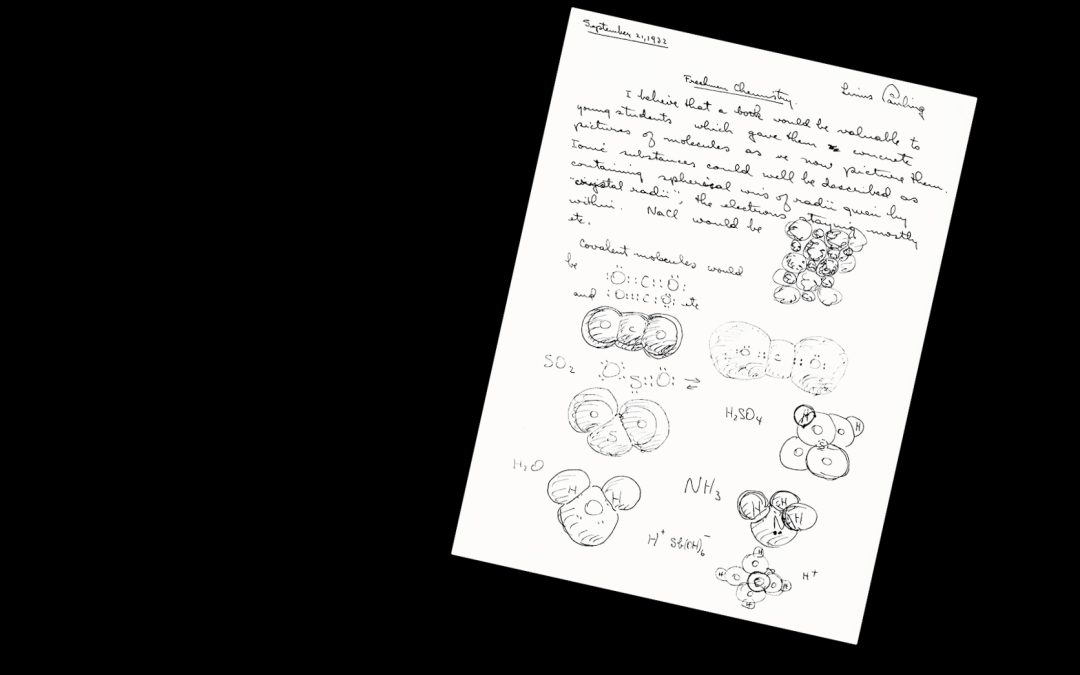 September 21, 1932
Freshman Chemistry. Linus Pauling
I believe that a book would be valuable to
young students which gave them concrete
pictures of molecules as we now picture them.
Ionic substances could well be described as
containing spherical ions of radii given by
"crystal radii", the electrons staying mostly
within. NaCl would be
etc.
Covalent molecules would
be :Ö::C::Ö:
and :O:::C:Ö: etc
O C O
:Ö::C::Ö:
SO2 :Ö:S::Ö: ⇌
O S O
H2SO4
H H O O S O O
H2O
H H O
NH3
H H H N
H+ Sb(OH)6-
H O O O O H H H+